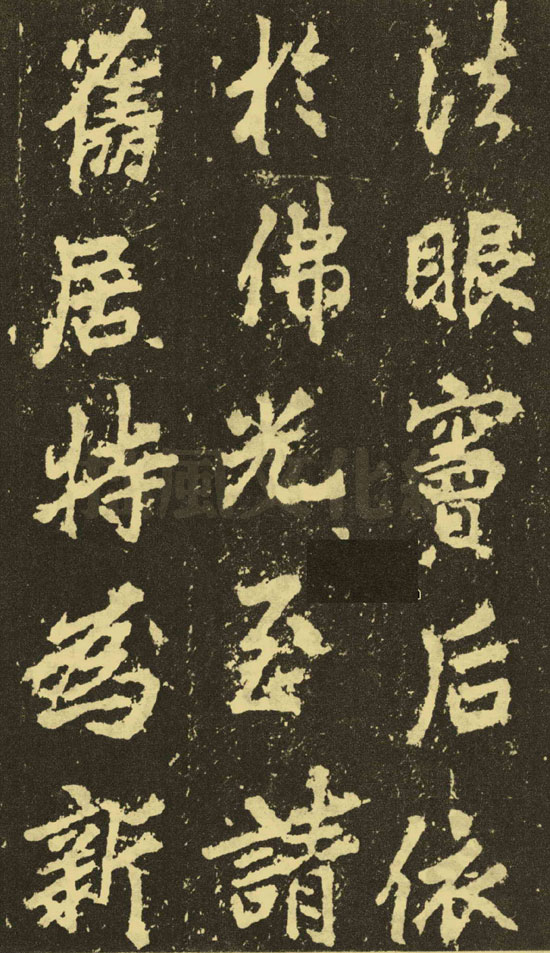 法眼竇后依
於佛光至請
舊居特為新